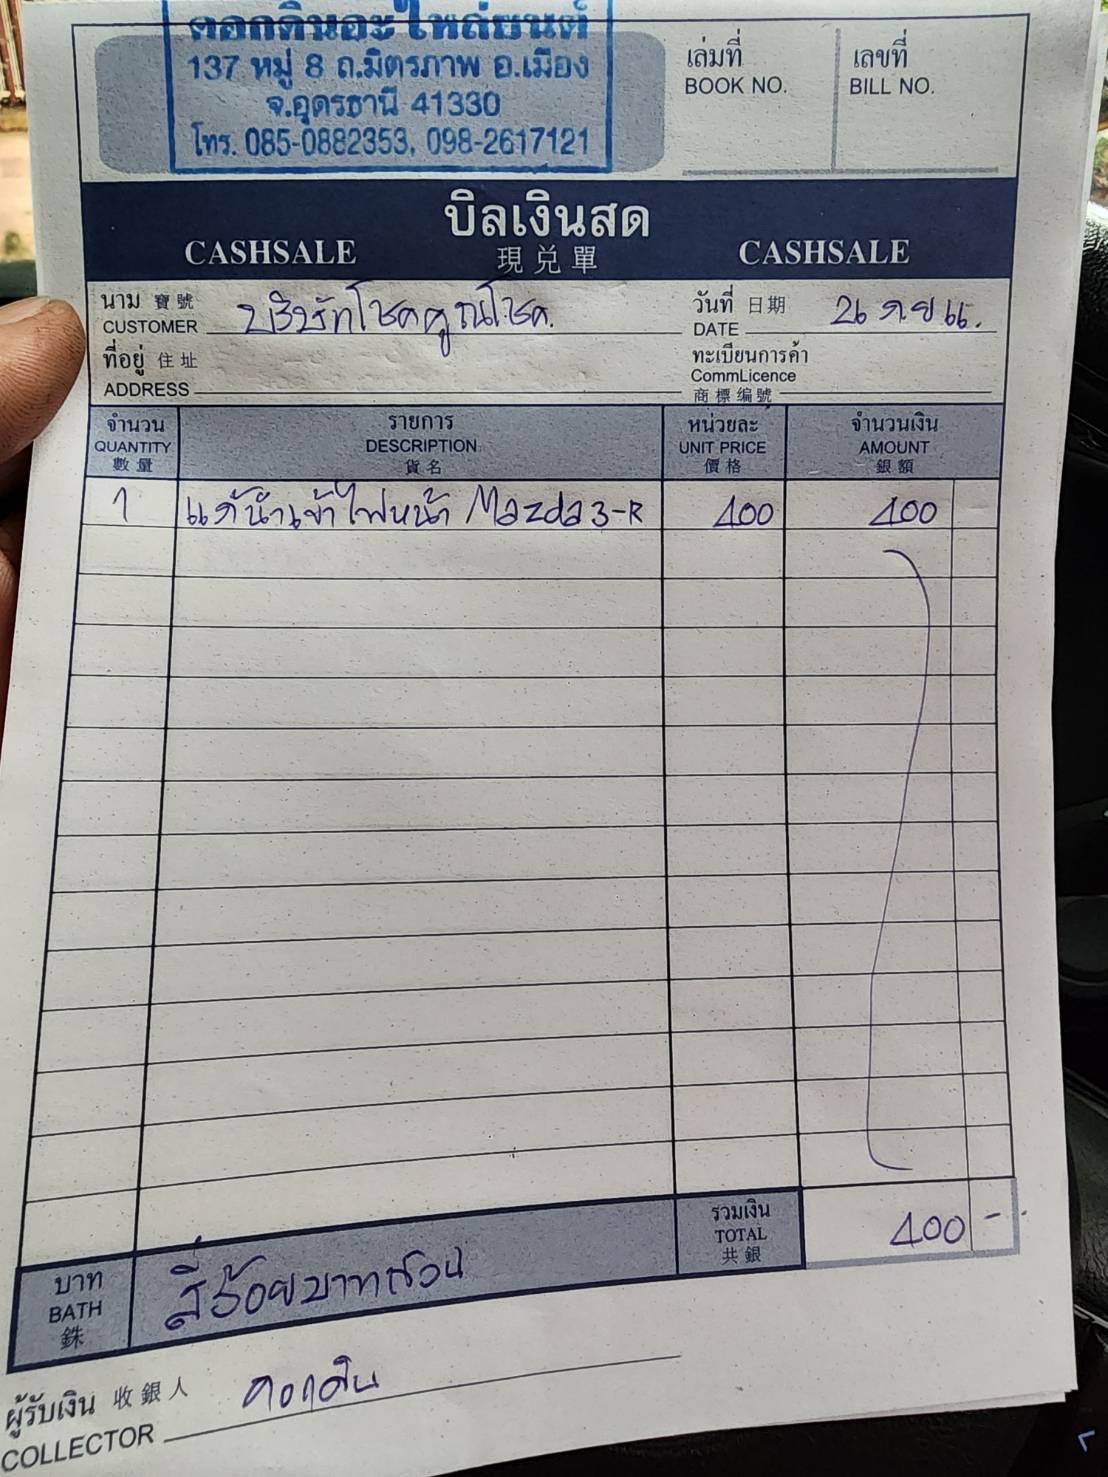 ดอกดินอะไหล่ยนต์
137 หมู่ 8 ถ.มิตรภาพ อ.เมือง
จ.อุดรธานี 41330
โทร. 085-0882353, 098-2617121
เล่มที่
BOOK NO.
เลขที่
BILL NO.
บิลเงินสด
CASHSALE 現兌單 CASHSALE
นาม 寶號
CUSTOMER บริษัทโชคคูณโชค.
วันที่ 日期
DATE 26 ก.ย 66.
ที่อยู่ 住址
ADDRESS
ทะเบียนการค้า
CommLicence
商標編號
จำนวน
QUANTITY
數量
รายการ
DESCRIPTION
貨名
หน่วยละ
UNIT PRICE
價格
จำนวนเงิน
AMOUNT
銀額
1 แก้น้ำเข้าไฟหน้า Mazda3-R 400 400
บาท
BATH
銖
สี่ร้อยบาทถ้วน
รวมเงิน
TOTAL
共銀
400 -
ผู้รับเงิน 收銀人
COLLECTOR ดอกดิน